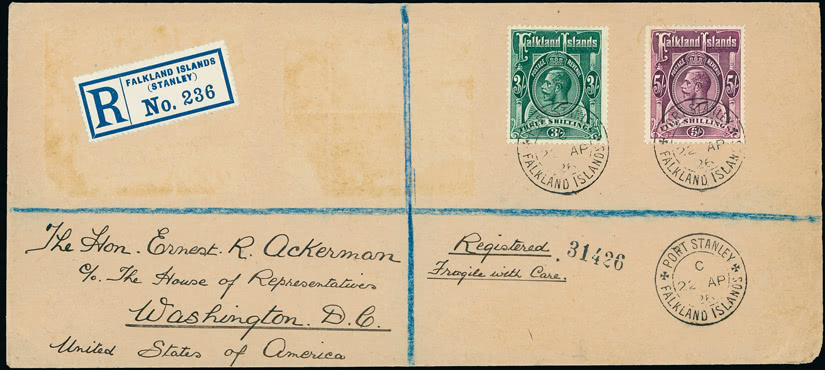 FALKLAND ISLANDS
(STANLEY)
R No. 236
Falkland Islands
POSTAGE REVENUE
3/ 3/
THREE SHILLINGS
3/-
Falkland Islands
POSTAGE REVENUE
5/- 5/-
FIVE SHILLINGS
5/-
PORT STANLEY
22 AP
26
FALKLAND ISLANDS
PORT STANLEY
22 AP
26
FALKLAND ISLANDS
The Hon. Ernest. R. Ackerman
c/o. The House of Representatives
Washington. D.C.
United States of America
Registered.
31426
Fragile with Care.
PORT STANLEY
C
22 AP
26
FALKLAND ISLANDS